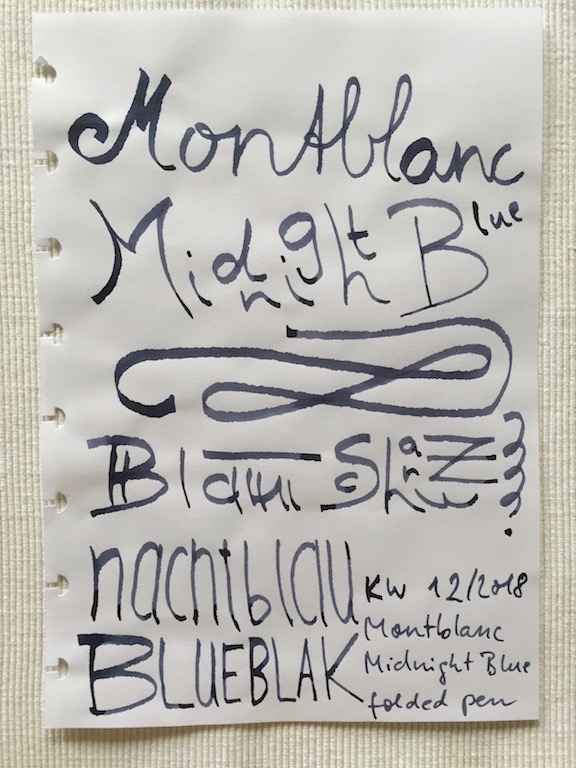 Montblanc
Midnight Blue
Blau
nachtblau
BLUEBLAK
KW 12/2018
Montblanc
Midnight Blue
folded pen